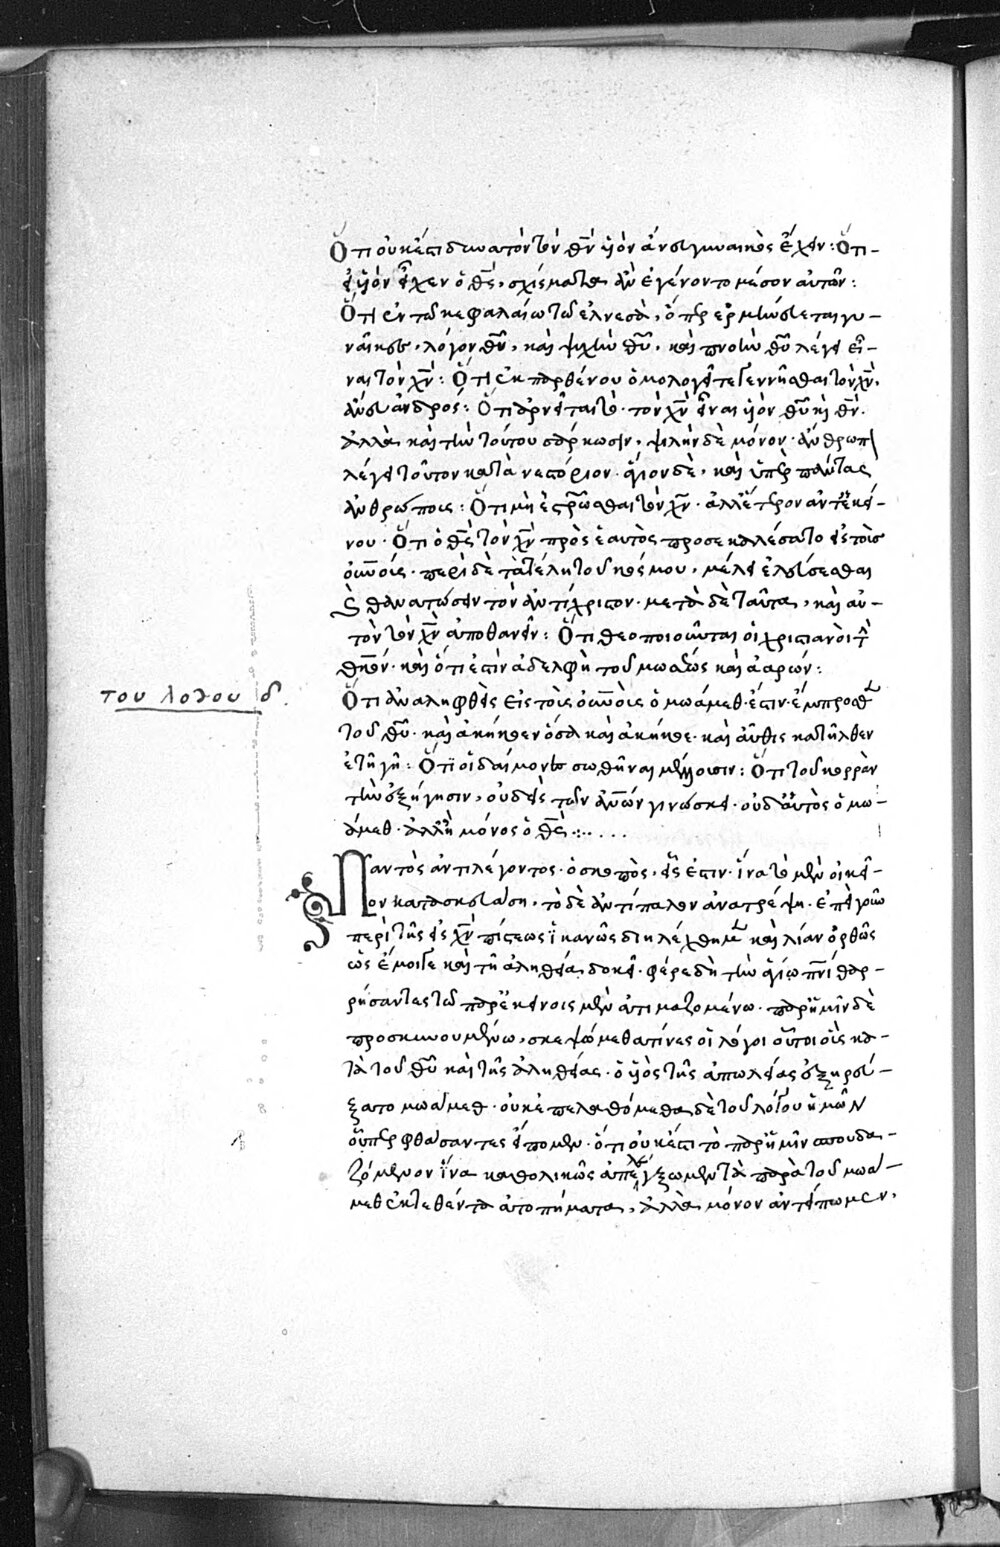 Ὅτι οὐκ ἔστι δυνατὸν τὸν θν̅ υἱὸν ἄνευ γυναικὸς ἔχειν: Ὅτι
εἰ υἱὸν εἶχεν ὁ θς̅, σχίσματα ἂν ἐγένοντο μέσον αὐτῶν:
Ὅτι ἐν τῶ κεφαλαίω τῶ ἐλνεσὰ, ὅπερ ἑρμηνεύεται γυ-
ναῖκες, λόγον θυ̅, καὶ ψυχὴν θυ̅, καὶ πνοὴν θυ̅ λέγει εἶ-
ναι τὸν χν̅: Ὅτι ἐκ παρθένου ὁμολογεῖτε γεννῆσθαι τὸν χν̅,
ἄνευ ἀνδρός: Ὅτι ἀρνεῖται τὸ τὸν χν̅ εἶναι υἱὸν θυ̅ κὶ θν̅.
ἀλλὰ καὶ τὴν τούτου σάρκωσιν, ψιλὴν δὲ μόνον ἄνθρωπ
λέγει τοῦτον κατὰ νεστόριον. ἅγιον δὲ, καὶ ὑπὲρ πάντας
ἀνθρώποις: Ὅτι μὴ ἐσταυρῶσθαι τὸν χν̅. ἀλλ' ἕτερον ἀντ' ἐκεί-
νου. Ὅτι ὁ θς̅ τὸν χν̅ πρὸς ἑαυτὸς προσεκαλέσατο εἰς τοῖς
οὐνοῖς. περὶ δὲ τὰ τέλη τοῦ κόσμου, μέλει ἐλεύσεσθαι
καὶ θανατώσειν τὸν ἀντίχριστον. μετὰ δὲ ταῦτα, καὶ αὐ-
τὸν τὸν χν̅ ἀποθανεῖν: Ὅτι θεοποιοῦνται οἱ χριστιανοὶ τὴν
θκον̅. καὶ ὅτι ἐστὶν ἀδελφὴ τοῦ μωσέως καὶ ἀαρών:
του λογου δ.
Ὅτι ἀναληφθεὶς εἰς τοῖς οὐνοῖς ὁ μωάμεθ. ἔστιν ἔμπροσθ
τοῦ θυ̅. καὶ ἀκήκοεν ὅσα καὶ ἀκήκοε. καὶ αὖθις κατῆλθεν
ἐν τῆ γῆ: Ὅτι οἱ δαίμονες σωθῆναι μέλλουσιν: Ὅτι τοῦ κορρὰν
τὴν ἐξήγησιν, οὐδεὶς τῶν ἀνων̅ γινώσκει. οὐδ' αὐτὸς ὁ μω-
άμεθ. ἀλλ' ἢ μόνος ὁ θς̅ :·. . . .
Παντὸς ἀντιλέγοντος ὁ σκοπὸς, εἷς ἐστιν. ἵνα τὸ μὲν οἰκεῖ-
ον κατασκευάση, τὸ δὲ ἀντίπαλον ἀνατρέψη. ἐπεὶ γοῦν
περὶ τῆς εἰς χν̅ πίστεως ἱκανῶς διηλέχθημεν καὶ λίαν ὀρθῶς
ὡς ἔμοιγε καὶ τῆ ἀληθεία δοκεῖ. φέρε δὴ τὴν ἁγίω πνι̅ θαρ-
ρήσαντες τῶ παρ' ἐκείνοις μὲν ἀτιμαζομένω. παρ' ἡμῖν δὲ
προσκυνουμένω, σκεψώμεθα τίνες οἱ λόγοι οὗτοι οἷς κα-
τὰ τοῦ θυ̅ καὶ τῆς ἀληθείας. ὁ υἱὸς τῆς ἀπωλείας ἐξηρεύ-
ξατο μωάμεθ. οὐκ ἐπελαθόμεθα δὲ τοῦ λόγου ἡμῶν
οὗπερ φθάσαντες εἴπομεν. ὅτι οὐκ ἔστι τὸ παρ' ἡμῖν σπουδα-
ζόμενον ἵνα καθολικῶς ἀπελέγξωμεν τὰ παρὰ τοῦ μωά-
μεθ ἐκτεθέντα ἀτοπήματα, ἀλλὰ μόνον ἀντείπωμεν,